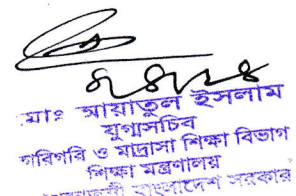 মোঃ আয়াতুল ইসলাম
যুগ্মসচিব
কারিগরি ও মাদ্রাসা শিক্ষা বিভাগ
শিক্ষা মন্ত্রণালয়
বাংলাদেশ সরকার